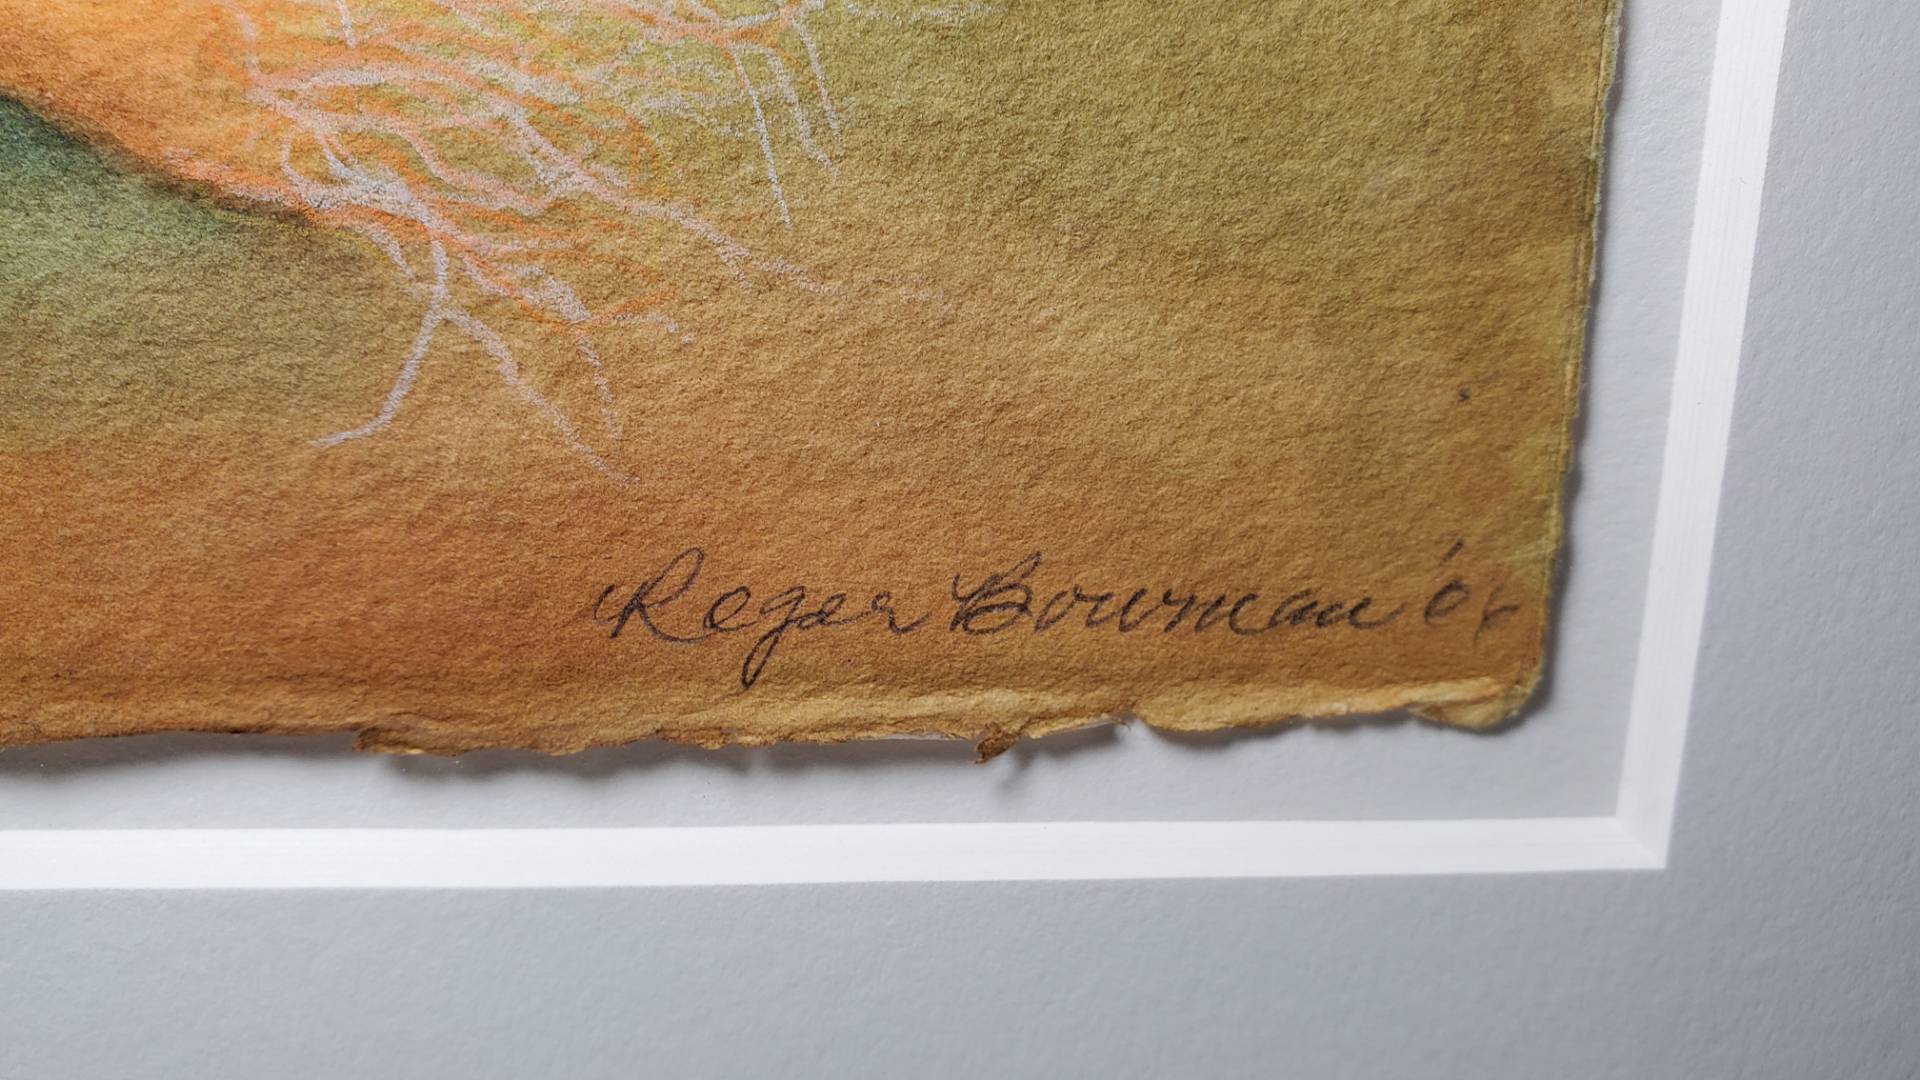 Roger Bowman